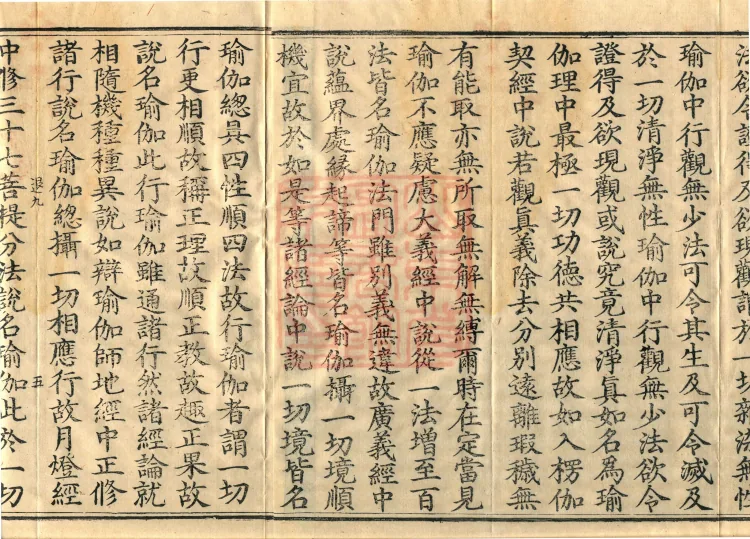 法欲令說行及欲現觀說於一切染法無性
瑜伽中行觀無少法可令其生及可令滅及
於一切清淨無性瑜伽中行觀無少法欲令
證得及欲現觀或說究竟清淨真如名為瑜
伽理中最極一切功德共相應故如入楞伽
契經中說若觀真義除去分別遠離瑕穢無
有能取亦無所取無解無縛爾時在定當見
瑜伽不應疑慮大義經中說從一法增至百
法皆名瑜伽法門雖別義無違故廣義經中
說蘊界處緣起諦等皆名瑜伽攝一切境順
機宜故於如是等諸經論中說一切境皆名
瑜伽總具四性順四法故行瑜伽者謂一切
行更相順故稱正理故順正教故趣正果故
說名瑜伽此行瑜伽雖通諸行然諸經論就
相隨機種種異說如辯瑜伽師地經中正修
諸行說名瑜伽總攝一切相應行故月燈經
退九 五
中修三十七菩提分法說名瑜伽此於一切